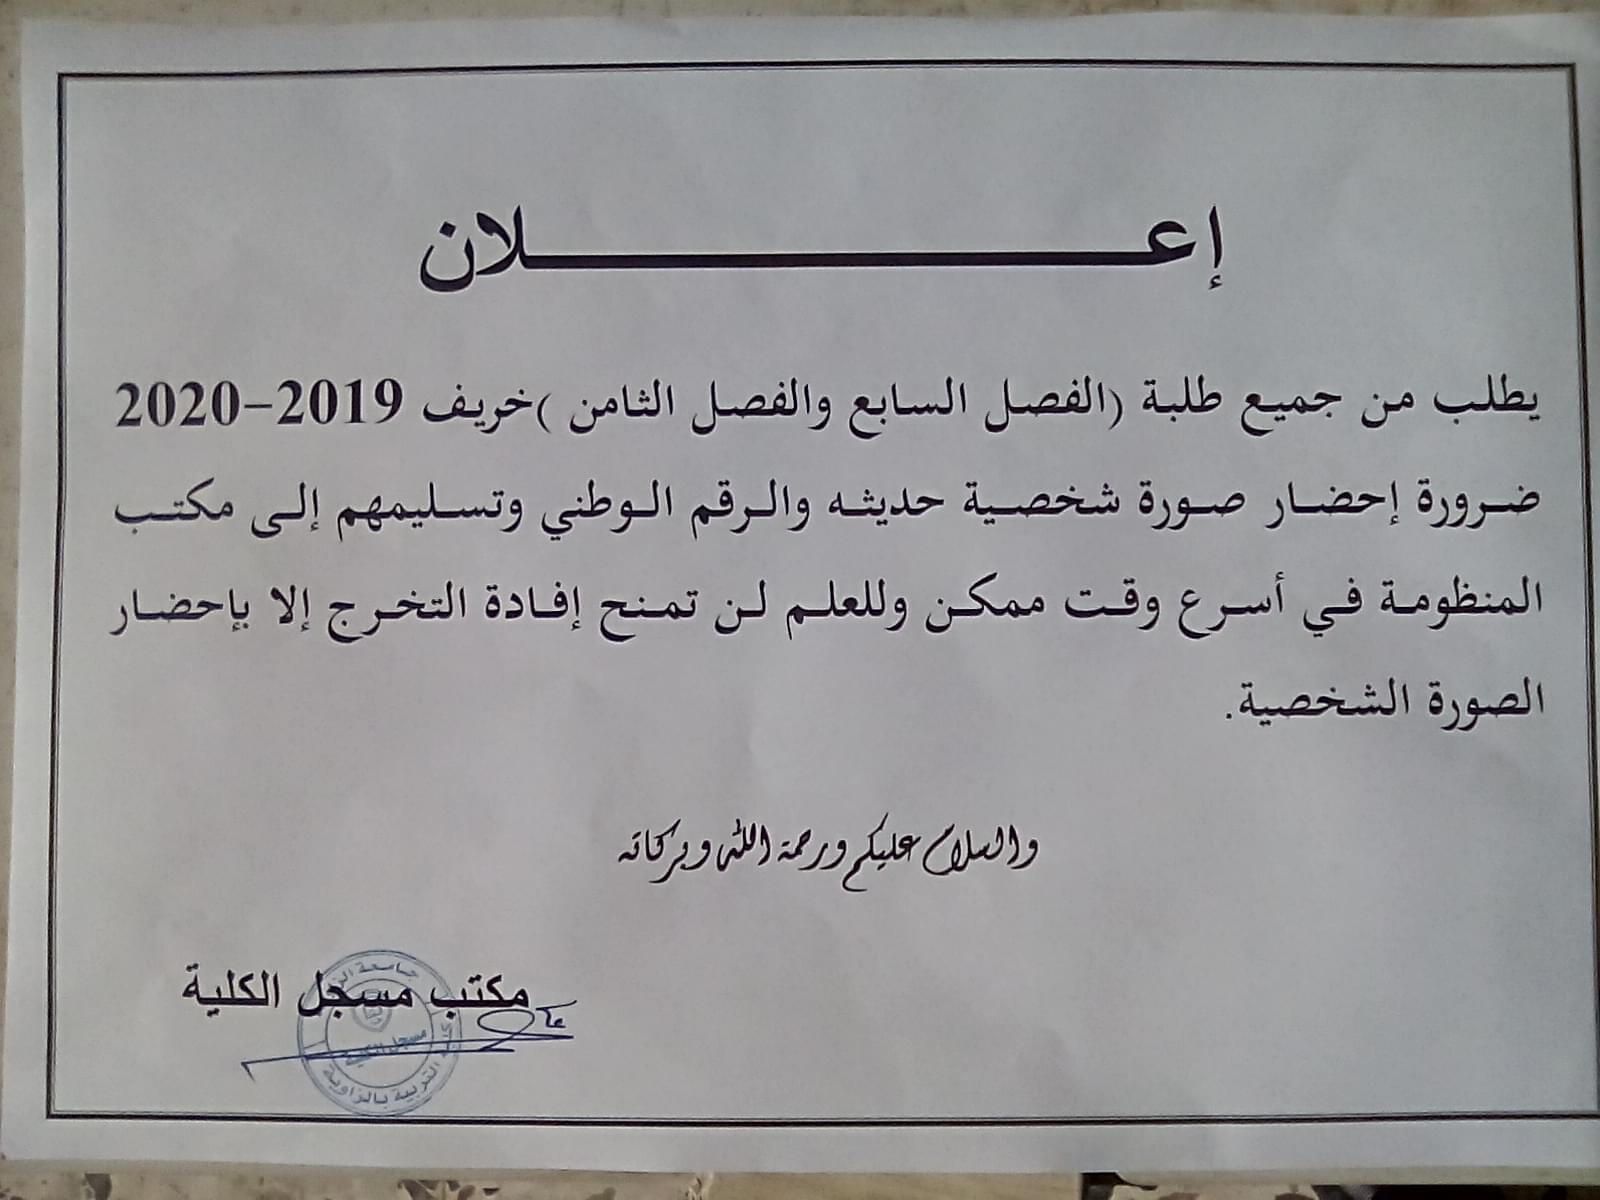 إعـــــــــلان
يطلب من جميع طلبة (الفصل السابع والفصل الثامن )خريف 2019-2020
ضرورة إحضار صورة شخصية حديثه والرقم الوطني وتسليمهم إلى مكتب
المنظومة في أسرع وقت ممكن وللعلم لن تمنح إفادة التخرج إلا بإحضار
الصورة الشخصية.
والسلام عليكم ورحمة الله وبركاته
مكتب مسجل الكلية
جامعة
مسجل الكلية
كلية التربية بالزاوية